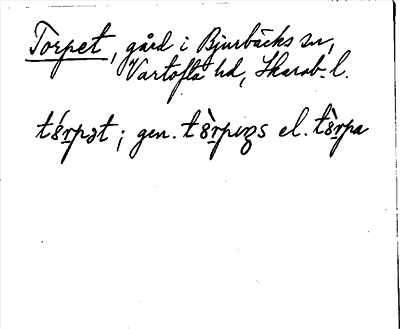 Torpet, gård i Bjurbäcks sn,
Vartofta hd, Skarab. l.
tɵ́rpət; gen. tɵ̀rpıŋs el. tɵ̀rpa